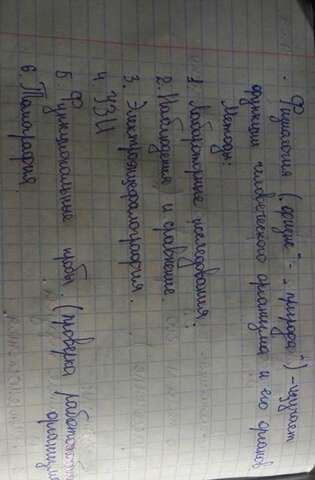 Физиология ("физис" - "природа") - изучает
функции человеческого организма и его органов
Методы:
1. Лабораторные исследования.
2. Наблюдение и сравнение
3. Электроэнцефалография.
4. УЗИ
5. Функциональные пробы (проверка
6. Томография.